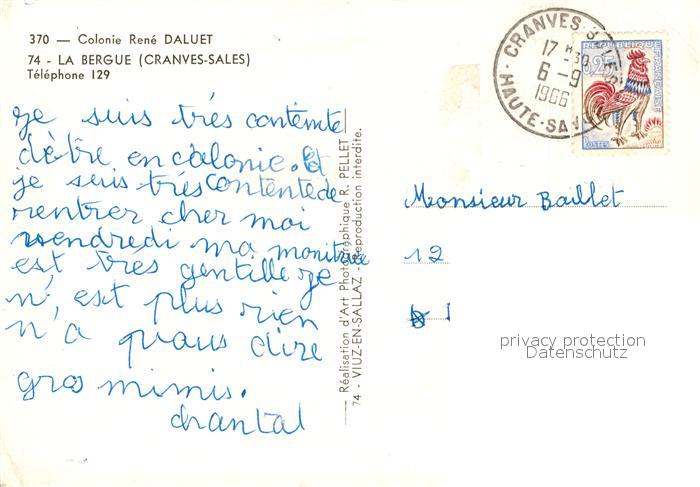 370 — Colonie René DALUET
74 - LA BERGUE (CRANVES-SALES)
Téléphone 129
je suis très contemte
d'être en colonie. et
je suis très contente de
rentrer cher moi
vendredi ma monitrice
est très gentille je
n'est plus rien
n'a vous dire
gros mimis.
chantal
Réalisation d'Art Photographique R. PELLET
74 - VIUZ-EN-SALLAZ - Reproduction interdite.
CRANVES-SALES
17 H 30
6-9
1966
HAUTE-SAVOIE
REPUBLIQUE FRANÇAISE
0,25
POSTES
Monsieur Baillet
12
privacy protection
Datenschutz